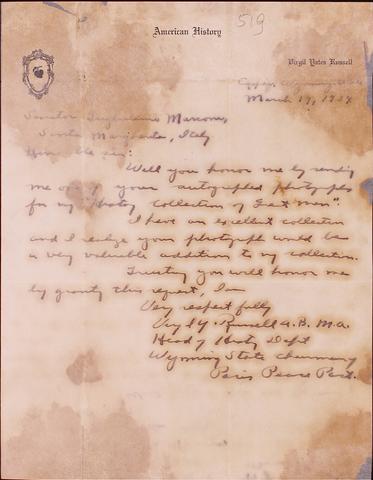 519
American History
Virgil Yates Russell
March 19, 1934
Senator Guglielmo Marconi,
Santa Margherita, Italy
Honorable sir:
Will you honor me by sending
me one of your autographed photographs
for my "History Collection of Great Men".
I have an excellent collection
and I realize your photograph would be
a very valuable addition to my collection.
Trusting you will honor me
by granting this request, I am
Very respectfully
Virgil Y Russell A.B. M.A.
Head of History Dept
Wyoming State chairman
Paris Peace Pact.